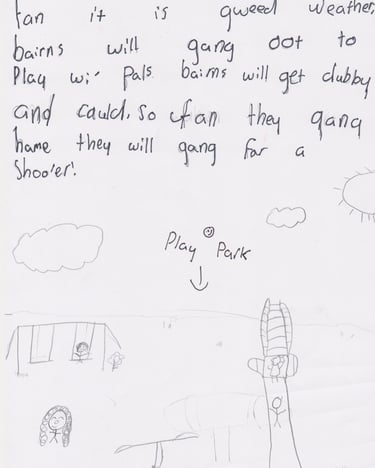 fan it is gweed weather,
bairns will gang oot to
Play wi' pals bairns will get clubby
and cauld, so fan they gang
hame they will gang for a
Shoo'er!
Play Park